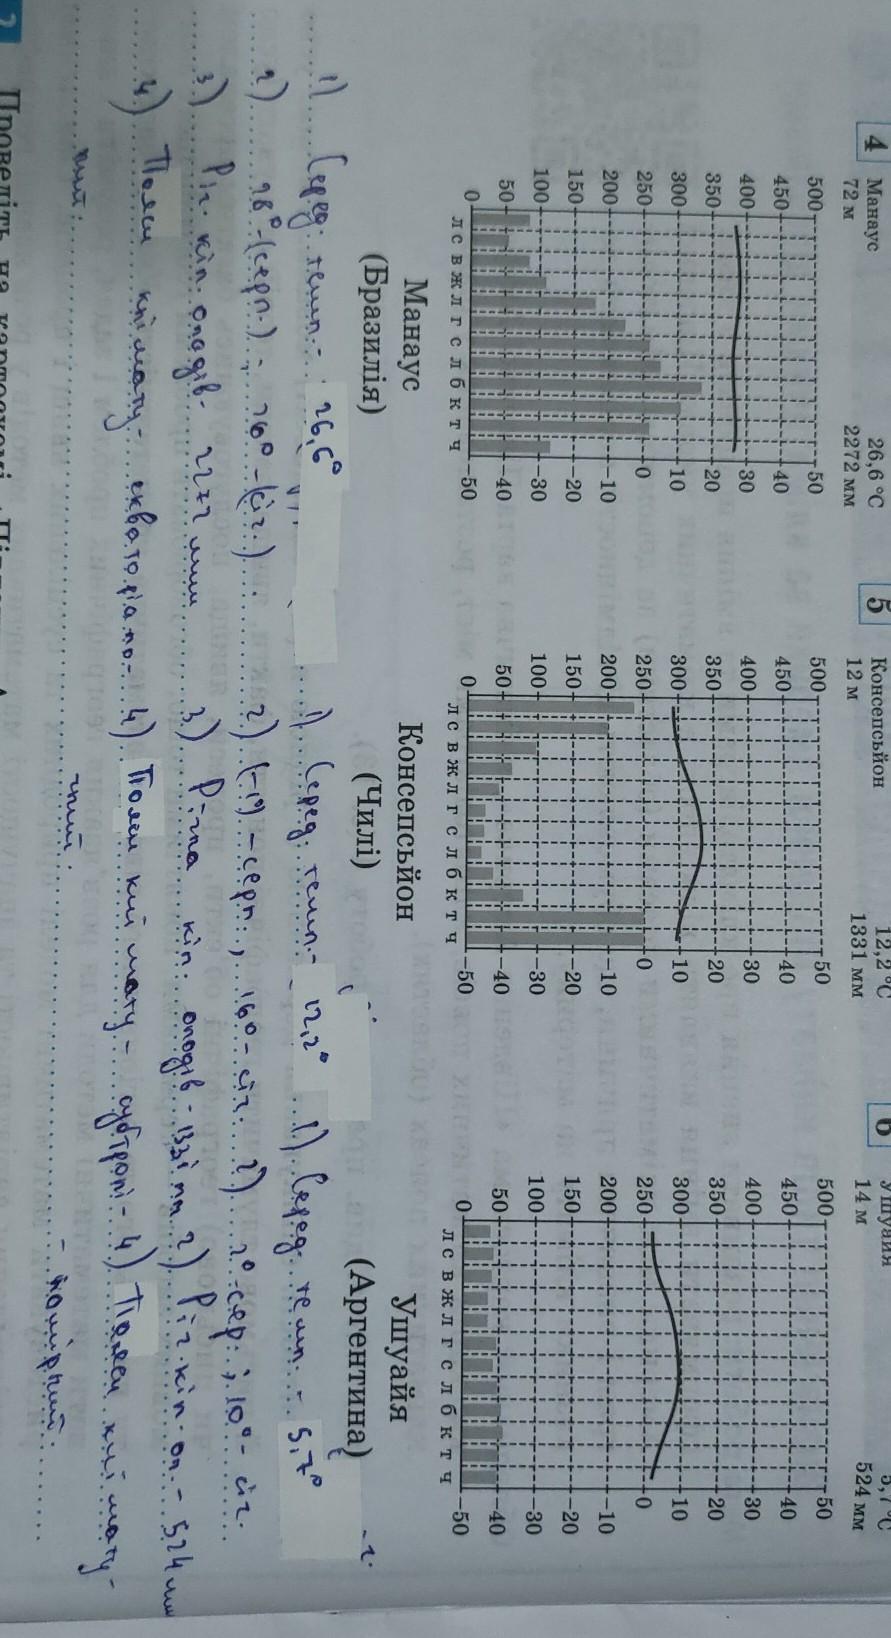 4
Манаус
72 м
26,6 °C
2272 мм
500
450
400
350
300
250
200
150
100
50
0
50
30
20
10
0
−10
−20
−30
−40
−50
л с в ж л г с л б к т ч
Манаус
(Бразилія)
1) Серед. темп. - 26,6°
2) 28° - (серп.) - 26° - (січ.)
3) Річ. кіл. опадів - 2272 мм
4) Пояси клімату - екваторіаль-
ний.
5
Консепсьйон
12 м
12,2 °C
1331 мм
500
450
400
350
300
250
200
150
100
50
0
50
40
30
20
10
0
−10
−20
−30
−40
−50
л с в ж л г с л б к т ч
Консепсьйон
(Чилі)
1) Серед. темп. - 12,2°
2) - серп., 16° - січ.
3) Річна кіл. опадів -
4) Пояси клімату - субтропі-
чний.
6
Ушуайя
14 м
5,7 °C
524 мм
500
450
400
350
300
250
200
150
100
50
0
50
40
30
20
10
0
−10
−20
−30
−40
−50
л с в ж л г с л б к т ч
Ушуайя
(Аргентина)
1) Серед. темп. - 5,7°
2) 2° - сер.; 10° - січ.
2) Річ. кіл. оп. - 524 мм
4) Пояси клімату -
- помірний.
2 Проведіть на картосхемі